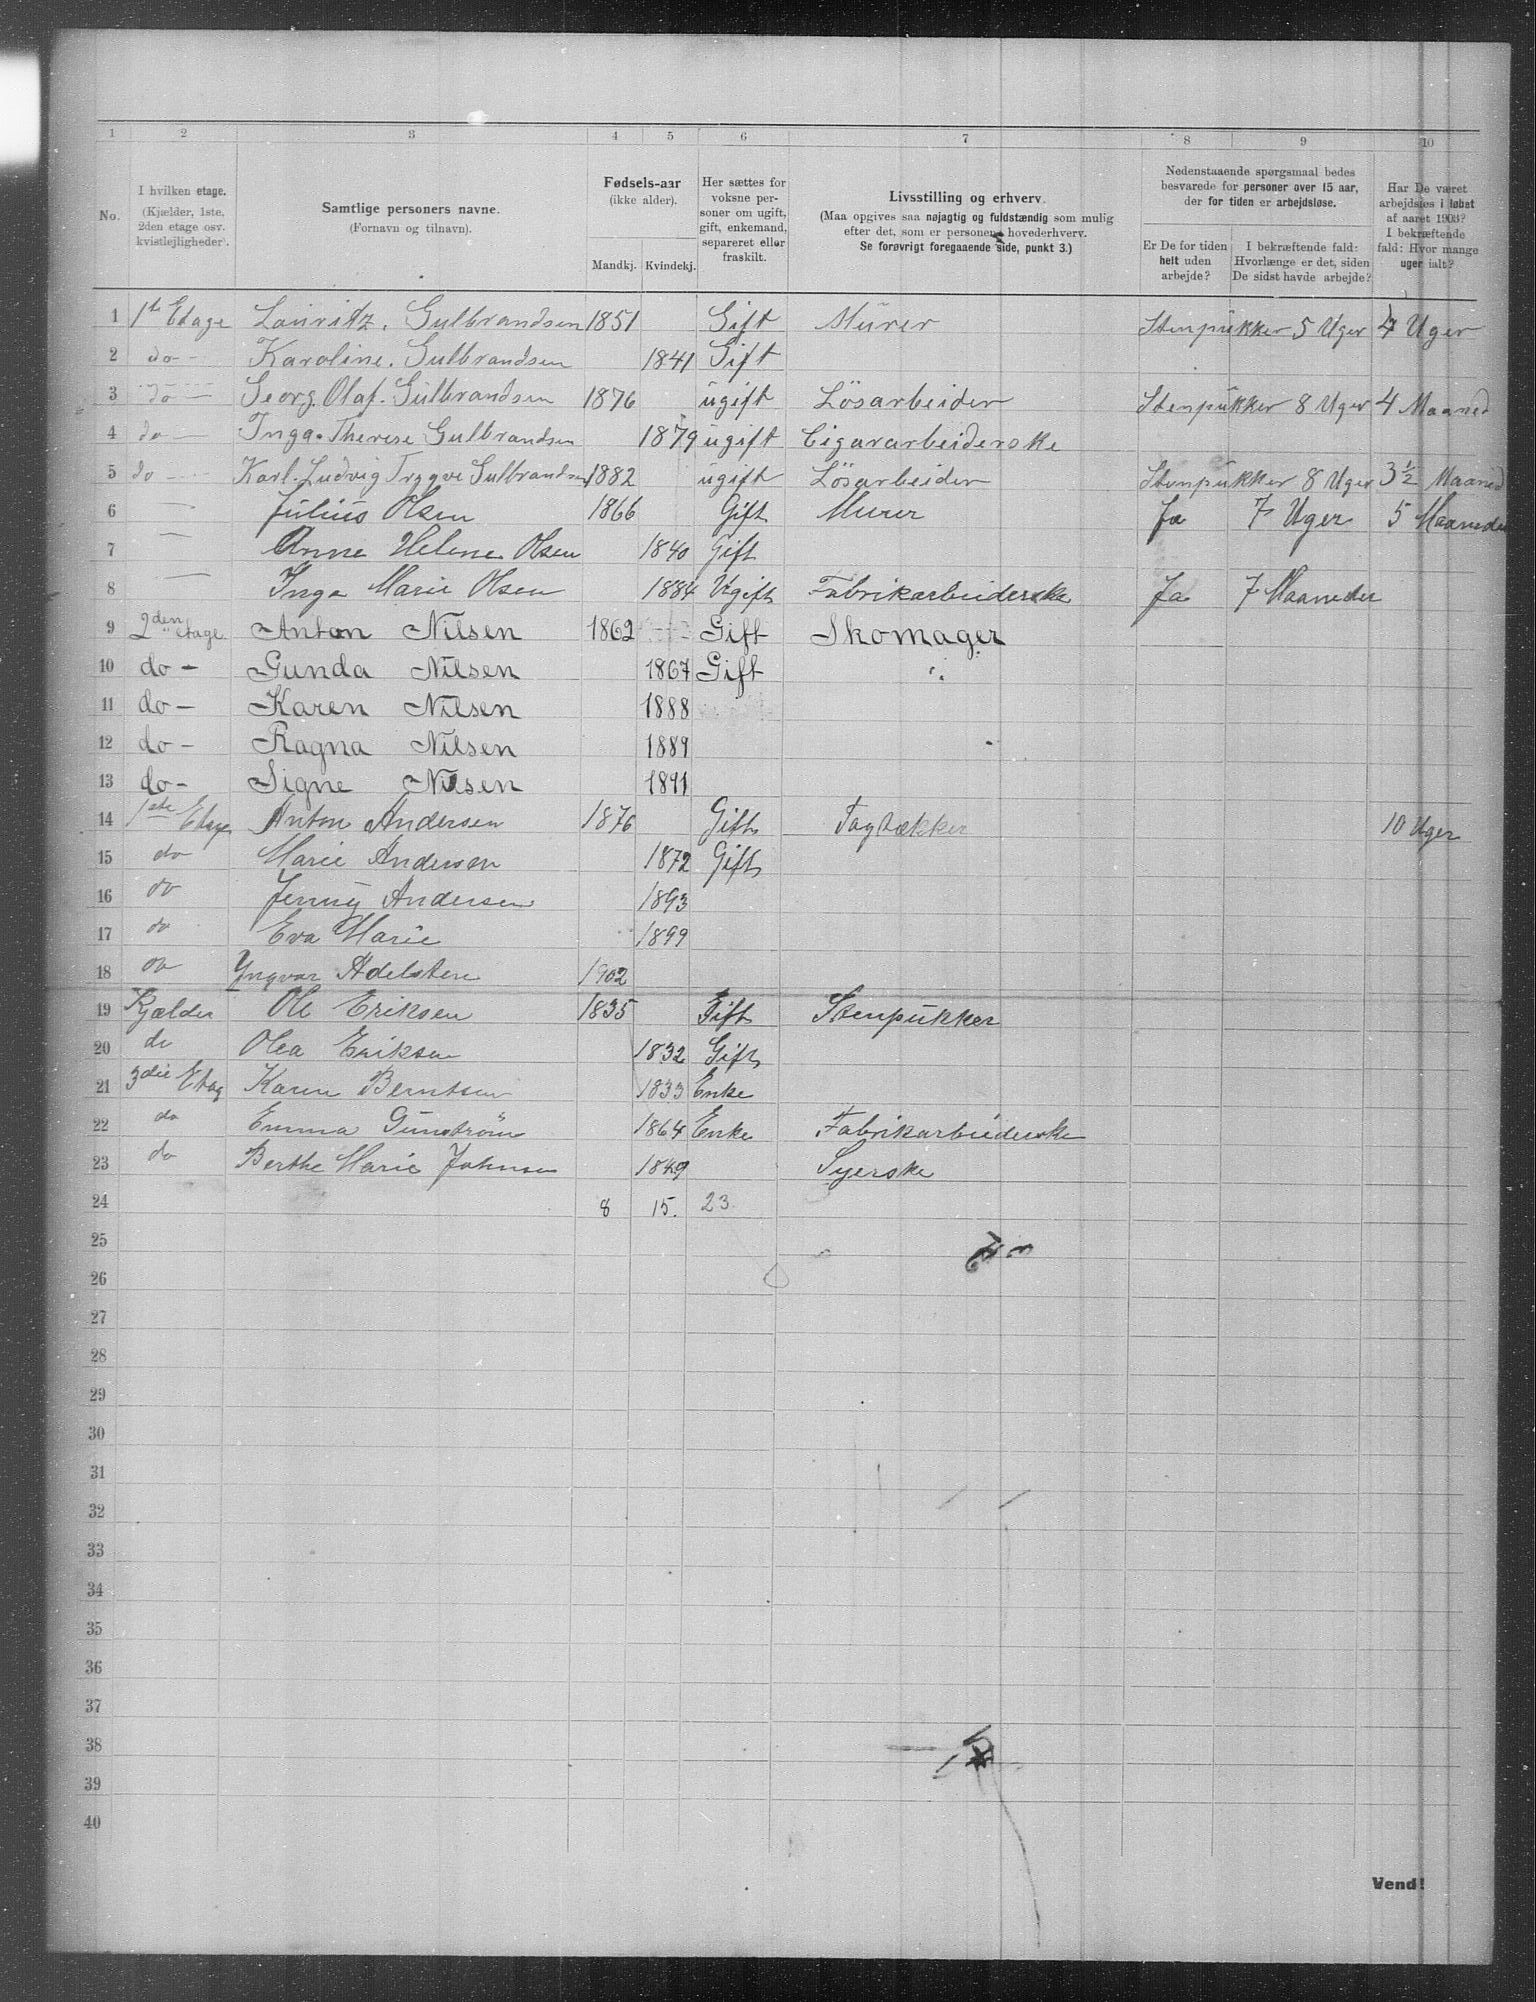 1 2 3 4 5 6 7 8 9 10
No.
I hvilken etage.
(Kjælder, 1ste,
2den etage osv.
kvistlejligheder).
Samtlige personers navne.
(Fornavn og tilnavn).
Fødsels-aar
(ikke alder).
Mandkj. Kvindekj.
Her sættes for
voksne per-
soner om ugift,
gift, enkemand,
separeret eller
fraskilt.
Livsstilling og erhverv.
(Maa opgives saa nøjagtig og fuldstændig som mulig
efter det, som er personens hovederhverv.
Se forøvrigt foregaaende side, punkt 3.)
Nedenstaaende spørgsmaal bedes
besvarede for personer over 15 aar,
der for tiden er arbejdsløse.
Er De for tiden
helt uden
arbejde?
I bekræftende fald:
Hvorlænge er det, siden
De sidst havde arbejde?
Har De været
arbejdsløs i løbet
af aaret 1903?
I bekræftende
fald: Hvor mange
uger ialt?
1 1ste Etage Lauritz. Gulbrandsen 1851 Gift Murer Stenpukker 5 Uger 4 Uger
2 do Karoline. Gulbrandsen 1841 Gift
3 do Georg. Olaf. Gulbrandsen 1876 ugift Lösarbeider Stenpukker 8 Uger 4 Maaned
4 do Inga. Therese Gulbrandsen 1879 ugift Cigararbeiderske
5 do Karl. Ludvig Trygve Gulbrandsen 1882 ugift Lösarbeider Stenpukker 8 Uger 3 1/2 Maaned
6 — Julius Olsen 1866 Gift Murer Ja 7 Uger 5 Maaneder
7 — Anne Helene Olsen 1840 Gift
8 — Inga Marie Olsen 1884 Ugift Fabrikarbeiderske Ja 7 Maaneder
9 2den etage Anton Nilsen 1862 Gift Skomager
10 do - Gunda Nilsen 1867 Gift
11 do - Karen Nilsen 1888
12 do - Ragna Nilsen 1889
13 do - Signe Nilsen 1891
14 1ste Etage Anton Andersen 1876 Gift Tagtækker 10 Uger
15 do Marie Andersen 1872 Gift
16 do Jenny Andersen 1893
17 do Eva Marie 1899
18 do Yngvar Adelsten 1902
19 Kjælder Ole Eriksen 1835 Gift Stenpukker
20 do Olea Eriksen 1832 Gift
21 3die Etag Karen Berntsen 1833 Enke
22 do Emma Gunström 1864 Enke Fabrikarbeiderske
23 do Berthe Marie Johnsen 1849 Syerske
24 8 15. 23
25
26
27
28
29
30
31
32
33
34
35
36
37
38
39
40
Vend!